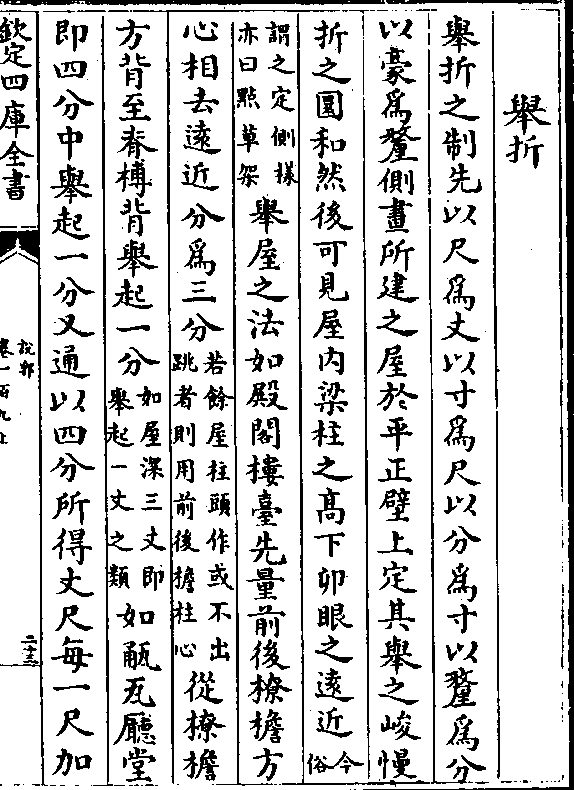 舉折
舉折之制先以尺為丈以寸為尺以分為寸以釐為分
以豪為釐側畫所建之屋於平正壁上定其舉之峻慢
折之圜和然後可見屋內梁柱之高下卯眼之遠近今俗
謂之定側樣亦曰㸃草架舉屋之法如殿閣樓臺先量前後橑檐方
心相去遠近分為三分若餘屋柱頭作或不出跳者則用前後擔柱心從橑檐
方背至脊槫背舉起一分如屋深三丈即舉起一丈之類如甋瓦廳堂
即四分中舉起一分又通以四分所得丈尺每一尺加
欽定四庫全書
說郛
卷一百九上
二十三